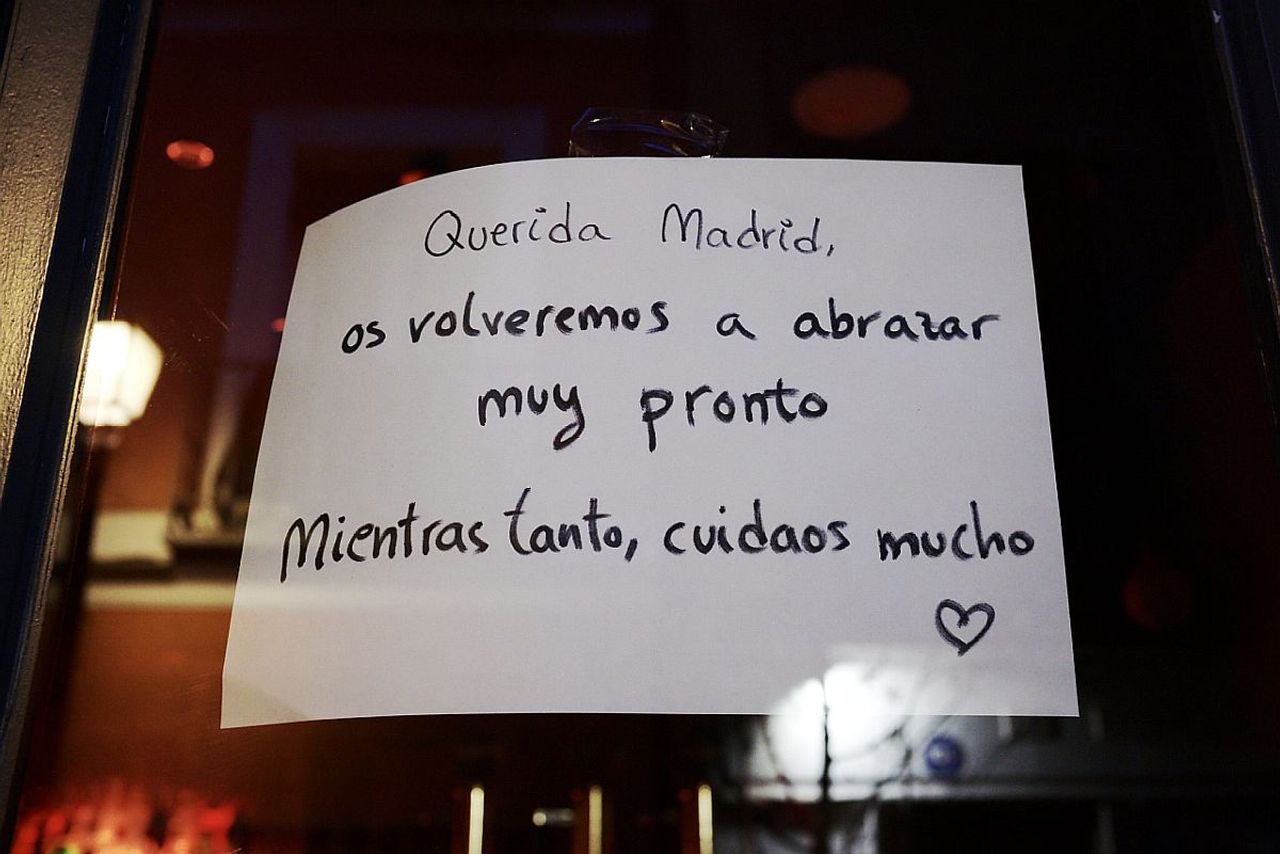 Querida Madrid,
os volveremos a abrazar
muy pronto
Mientras tanto, cuidaos mucho
♡